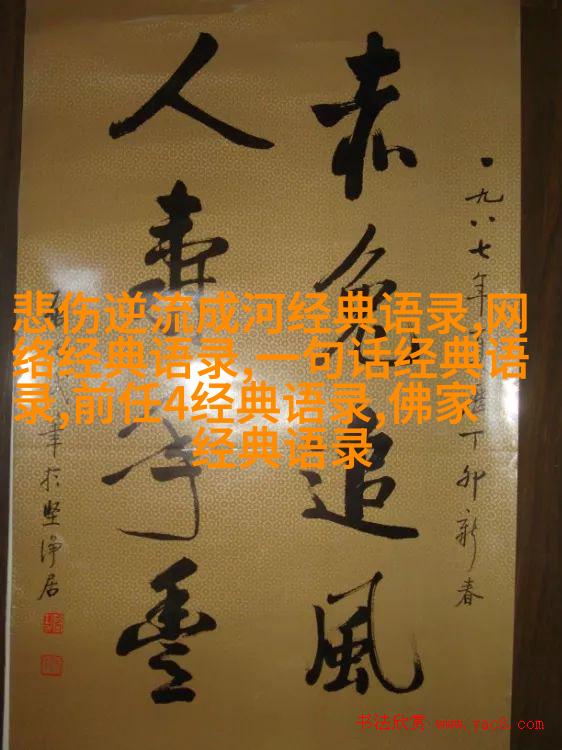 一九八七年
丁卯新春
赤兔追风
人寿年丰
於坚净居
悲伤逆流成河经典语录,网
络经典语录,一句话经典语
录,前任4经典语录,佛家
经典语录
书法欣赏 www.yac8.com